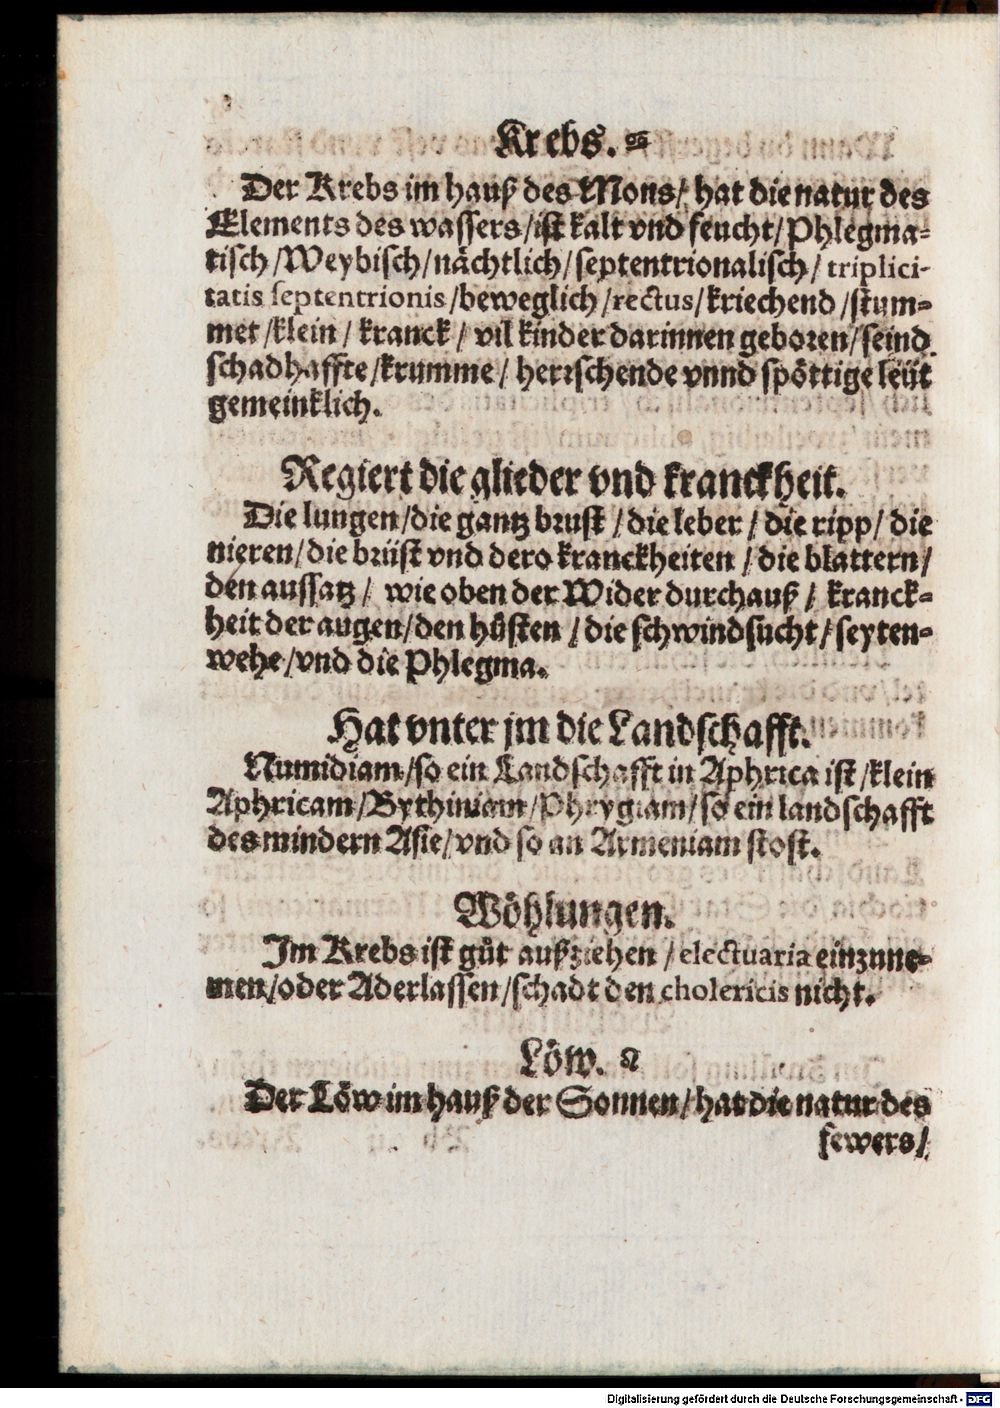 Krebs. ♋
Der Krebs im hauß des Mons/ hat die natur des
Elements des wassers/ist kalt vnd feucht/Phlegma-
tisch/Weybisch/nächtlich/septentrionalisch/triplici-
tatis septentrionis/beweglich/rectus/kriechend/stum-
met/klein/ kranck/ vil kinder darinnen geboren/seind
schadhaffte/krumme/ herrschende vnnd spöttige leüt
gemeinklich.
Regiert die glieder vnd kranckheit.
Die lungen/die gantz brust/die leber/ die ripp/ die
nieren/die brüst vnd dero kranckheiten/die blattern/
den aussatz/ wie oben der Wider durchauß/ kranck-
heit der augen/den hůsten/die schwindsucht/seyten-
wehe/vnd die Phlegma.
Hat vnter jm die Landschafft.
Numidiam/so ein Landschafft in Aphrica ist/klein
Aphricam/Bythiniam/Phrygiam/so ein landschafft
des mindern Asie/vnd so an Armeniam stost.
Wöhlungen.
Im Krebs ist gůt außziehen/electuaria einzune-
men/oder Aderlassen/schadt den cholericis nicht.
Löw. ♌
Der Löw im hauß der Sonnen/hat die natur des
fewers/
Digitalisierung gefördert durch die Deutsche Forschungsgemeinschaft - DFG